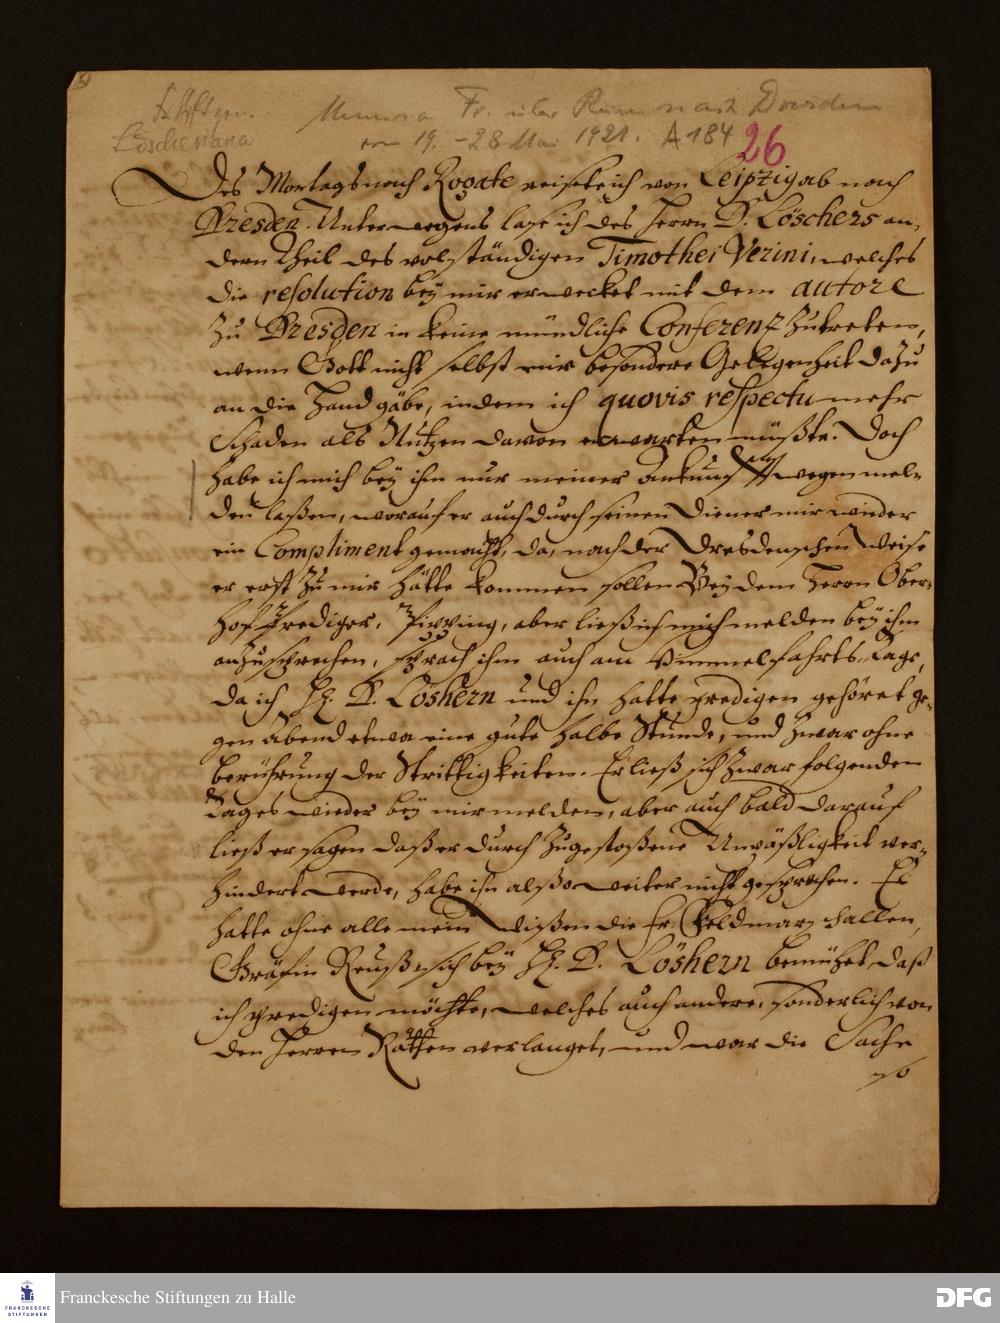 Löscheriana
Fr. über Reise nach Dresden
vom 19. - 28 Mai 1721. A 184
26
Des Montags nach Rogate reisete ich von Leipzig ab nach
Dresden. Unterwegens lase ich des Herrn D. Löschers an-
dern Theil des volständigen Timothei Verini, welches
die resolution bey mir erwecket mit dem autore
zu Dresden in keine mündliche Conferentz zutreten,
wenn Gott nicht selbst mir besondere Gelegenheit dazu
an die Hand gäbe, indem ich quovis respectu mehr
Schaden als Nutzen davon erwarten müßte. Doch
habe ich mich bey ihm nur meiner Ankunfft wegen mel-
den laßen, worauf er auch durch seinen Diener mir wieder
ein Compliment gemacht, da, nach der Dresdenschen Weise
er erst zu mir hätte kommen sollen Bey dem Herrn Ober-
hoff Prediger, Pipping, aber ließ ich mich melden bey ihm
anzusprechen, sprach ihn auch am Himmelfahrts-Tage,
da ich H. D. Löshern und ihn hatte predigen gehöret ge-
gen Abend etwa eine gute halbe Stunde, und zwar ohne
berührung der Strittigkeiten. Er ließ sich zwar folgenden
Tages wieder bey mir melden, aber auch bald darauf
ließ er sagen daß er durch zugestoßene Unpäßligkeit ver-
hindert werde, habe ihn alßo weiter nicht gesprochen. Es
hatte ohne alle mein Wißen die Fr. Feldmarschallin,
Gräfin Reuß, sich bey H. D. Löshern bemühet, daß
ich predigen möchte, welches auch andere, sonderlich von
den Herren Räthen verlanget, und war die Sache
so
Franckesche Stiftungen zu Halle
FRANCKESCHE
STIFTUNGEN
DFG